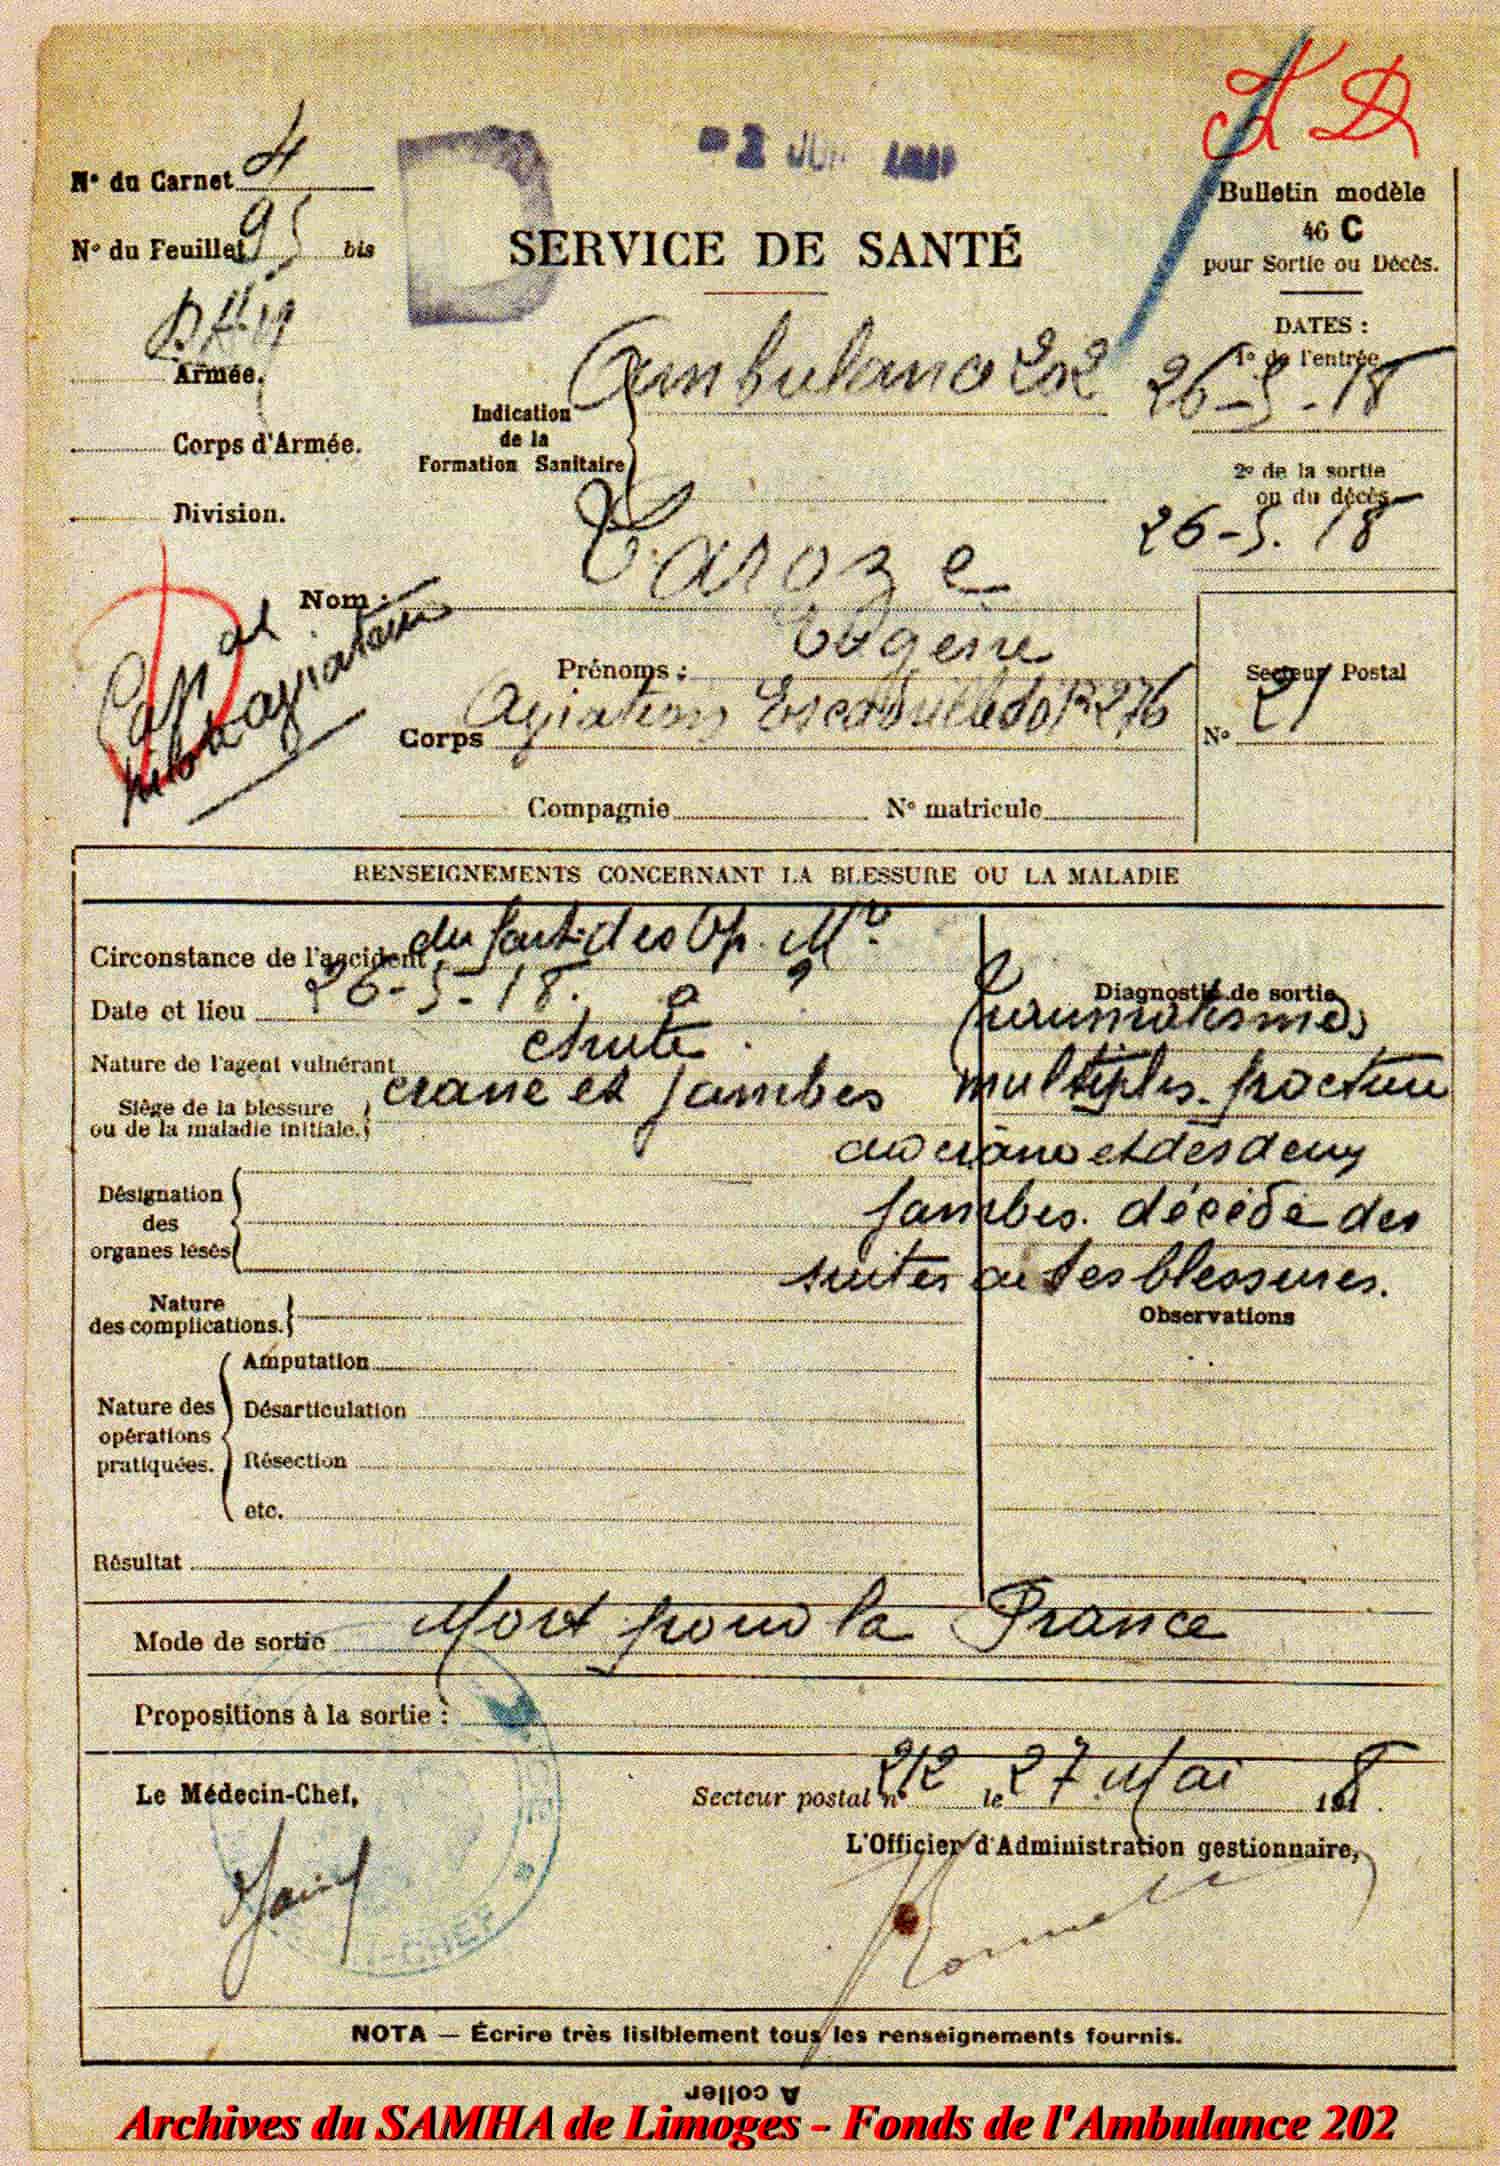 N° du Carnet 4
N° du Feuillet 95 bis
Armée.
Corps d'Armée.
Division.
D
2 JUN
SERVICE DE SANTÉ
Bulletin modèle
46 C
pour Sortie ou Décès.
DATES :
1° de l'entrée
26-5-18
2° de la sortie
ou du décès
26-5.18
Indication
de la
Formation Sanitaire
Ambulance 202
Nom : Varoze
Prénoms : Eugène
Corps Aviation Escadrille 276
Cal
pilote aviateur
Secteur Postal
N° 21
Compagnie N° matricule
RENSEIGNEMENTS CONCERNANT LA BLESSURE OU LA MALADIE
Circonstance de l'accident du fait des Op. Mres
Date et lieu 26-5-18. à ?
Nature de l'agent vulnérant chute
Siège de la blessure
ou de la maladie initiale. crane et jambes
Désignation
des
organes lésés
Nature
des complications.
Nature des
opérations
pratiquées.
Amputation
Désarticulation
Résection
etc.
Résultat
Diagnostic de sortie
traumatismes
multiples. fracture
du crâne et des deux
jambes. décédé des
suites de ses blessures.
Observations
Mode de sortie Mort pour la France
Propositions à la sortie :
Le Médecin-Chef,
Secteur postal n° 212 le 27 Mai 1918.
L'Officier d'Administration gestionnaire,
N-CHEF
NOTA — Écrire très lisiblement tous les renseignements fournis.
A coller
Archives du SAMHA de Limoges - Fonds de l'Ambulance 202